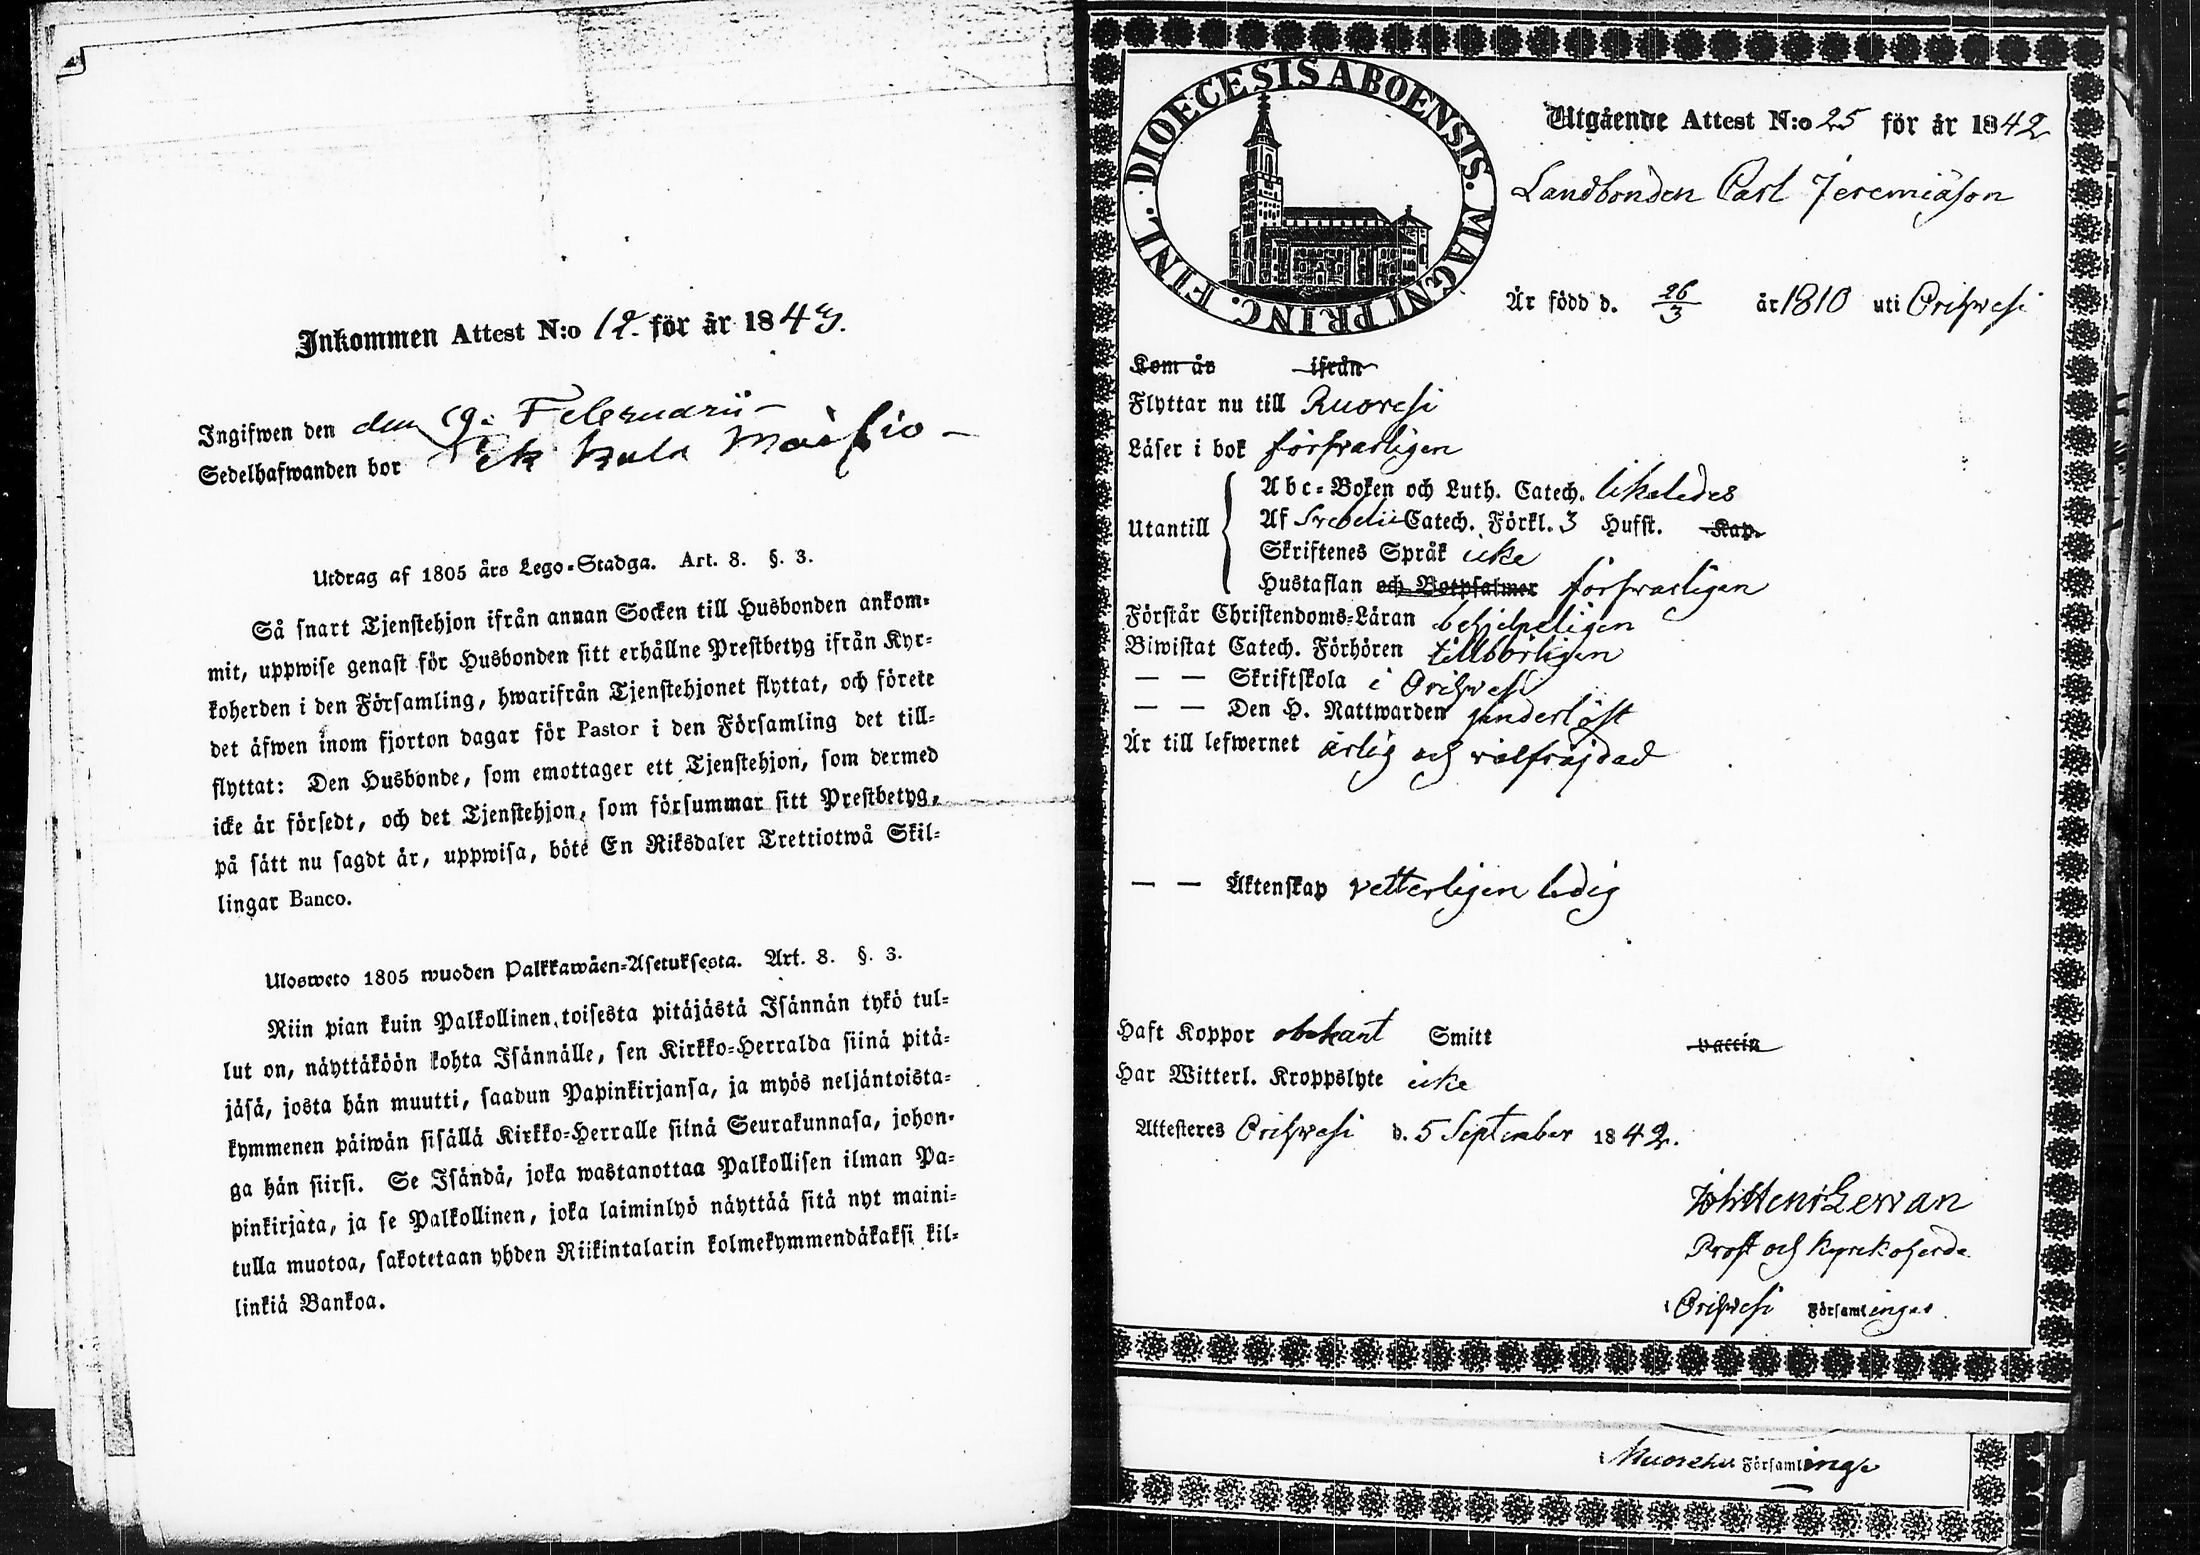 Inkommen Attest N:o 12. för år 1843.
Ingifwen den den 19. Februarii
Sedelhafwanden bor
Utdrag af 1805 års Lego-Stadga. Art. 8. §. 3.
Så snart Tjenstehjon ifrån annan Socken till Husbonden ankom-
mit, uppwise genast för Husbonden sitt erhållne Prestbetyg ifrån Kyr-
koherden i den Församling, hwarifrån Tjenstehjonet flyttat, och förete
det äfwen inom fjorton dagar för Pastor i den Församling det till-
flyttat: Den Husbonde, som emottager ett Tjenstehjon, som dermed
icke är försedt, och det Tjenstehjon, som försummar sitt Prestbetyg,
på sätt nu sagdt är, uppwisa, böte En Riksdaler Trettiotwå Skil-
lingar Banco.
Ulosweto 1805 wuoden Palkkawäen-Asetuksesta. Art. 8. §. 3.
Niin pian kuin Palkollinen toisesta pitäjästä Isännän tykö tul-
lut on, näyttäköön kohta Isännälle, sen Kirkko-Herralda siinä pitä-
jäsä, josta hän muutti, saadun Papinkirjansa, ja myös neljäntoista-
kymmenen päiwän sisällä Kirkko-Herralle siinä Seurakunnasa, johon-
ga hän siirsi. Se Isändä, joka wastanottaa Palkollisen ilman Pa-
pinkirjata, ja se Palkollinen, joka laiminlyö näyttää sitä nyt maini-
tulla muotoa, sakotetaan yhden Riikintalarin kolmekymmendäkaksi kil-
linkiä Bankoa.
DIOECESIS ABOENSIS. MAGNI PRINC. FINL.
Utgående Attest N:o 25 för år 1842
Landbonden Carl Jeremiäson
Är född d. 26/3 år 1810 uti Orihvesi
Kom år ifrån
Flyttar nu till Ruovesi
Läser i bok försvarligen
Utantill
Abc-Boken och Luth. Catech. likaledes
Af Svebelii Catech. Förkl. 3 Hufst. Kap.
Skriftenes Språk icke
Hustaflan och Botpsalmer försvarligen
Förstår Christendoms-Läran behjelpeligen
Biwistat Catech. Förhören tillbörligen
— — Skriftskola i Orihvesi
— — Den H. Nattwarden
Är till lefwernet ärlig och välfräjdad
— — Äktenskap vetterligen ledig
Haft Koppor obekant Smitt vaccin
Har Witterl. Kroppslyte icke
Attesteres Orihvesi d. 5 September 1842.
Prost och Kyrkoherde
i Orihvesi Församlingar
i Församlinge